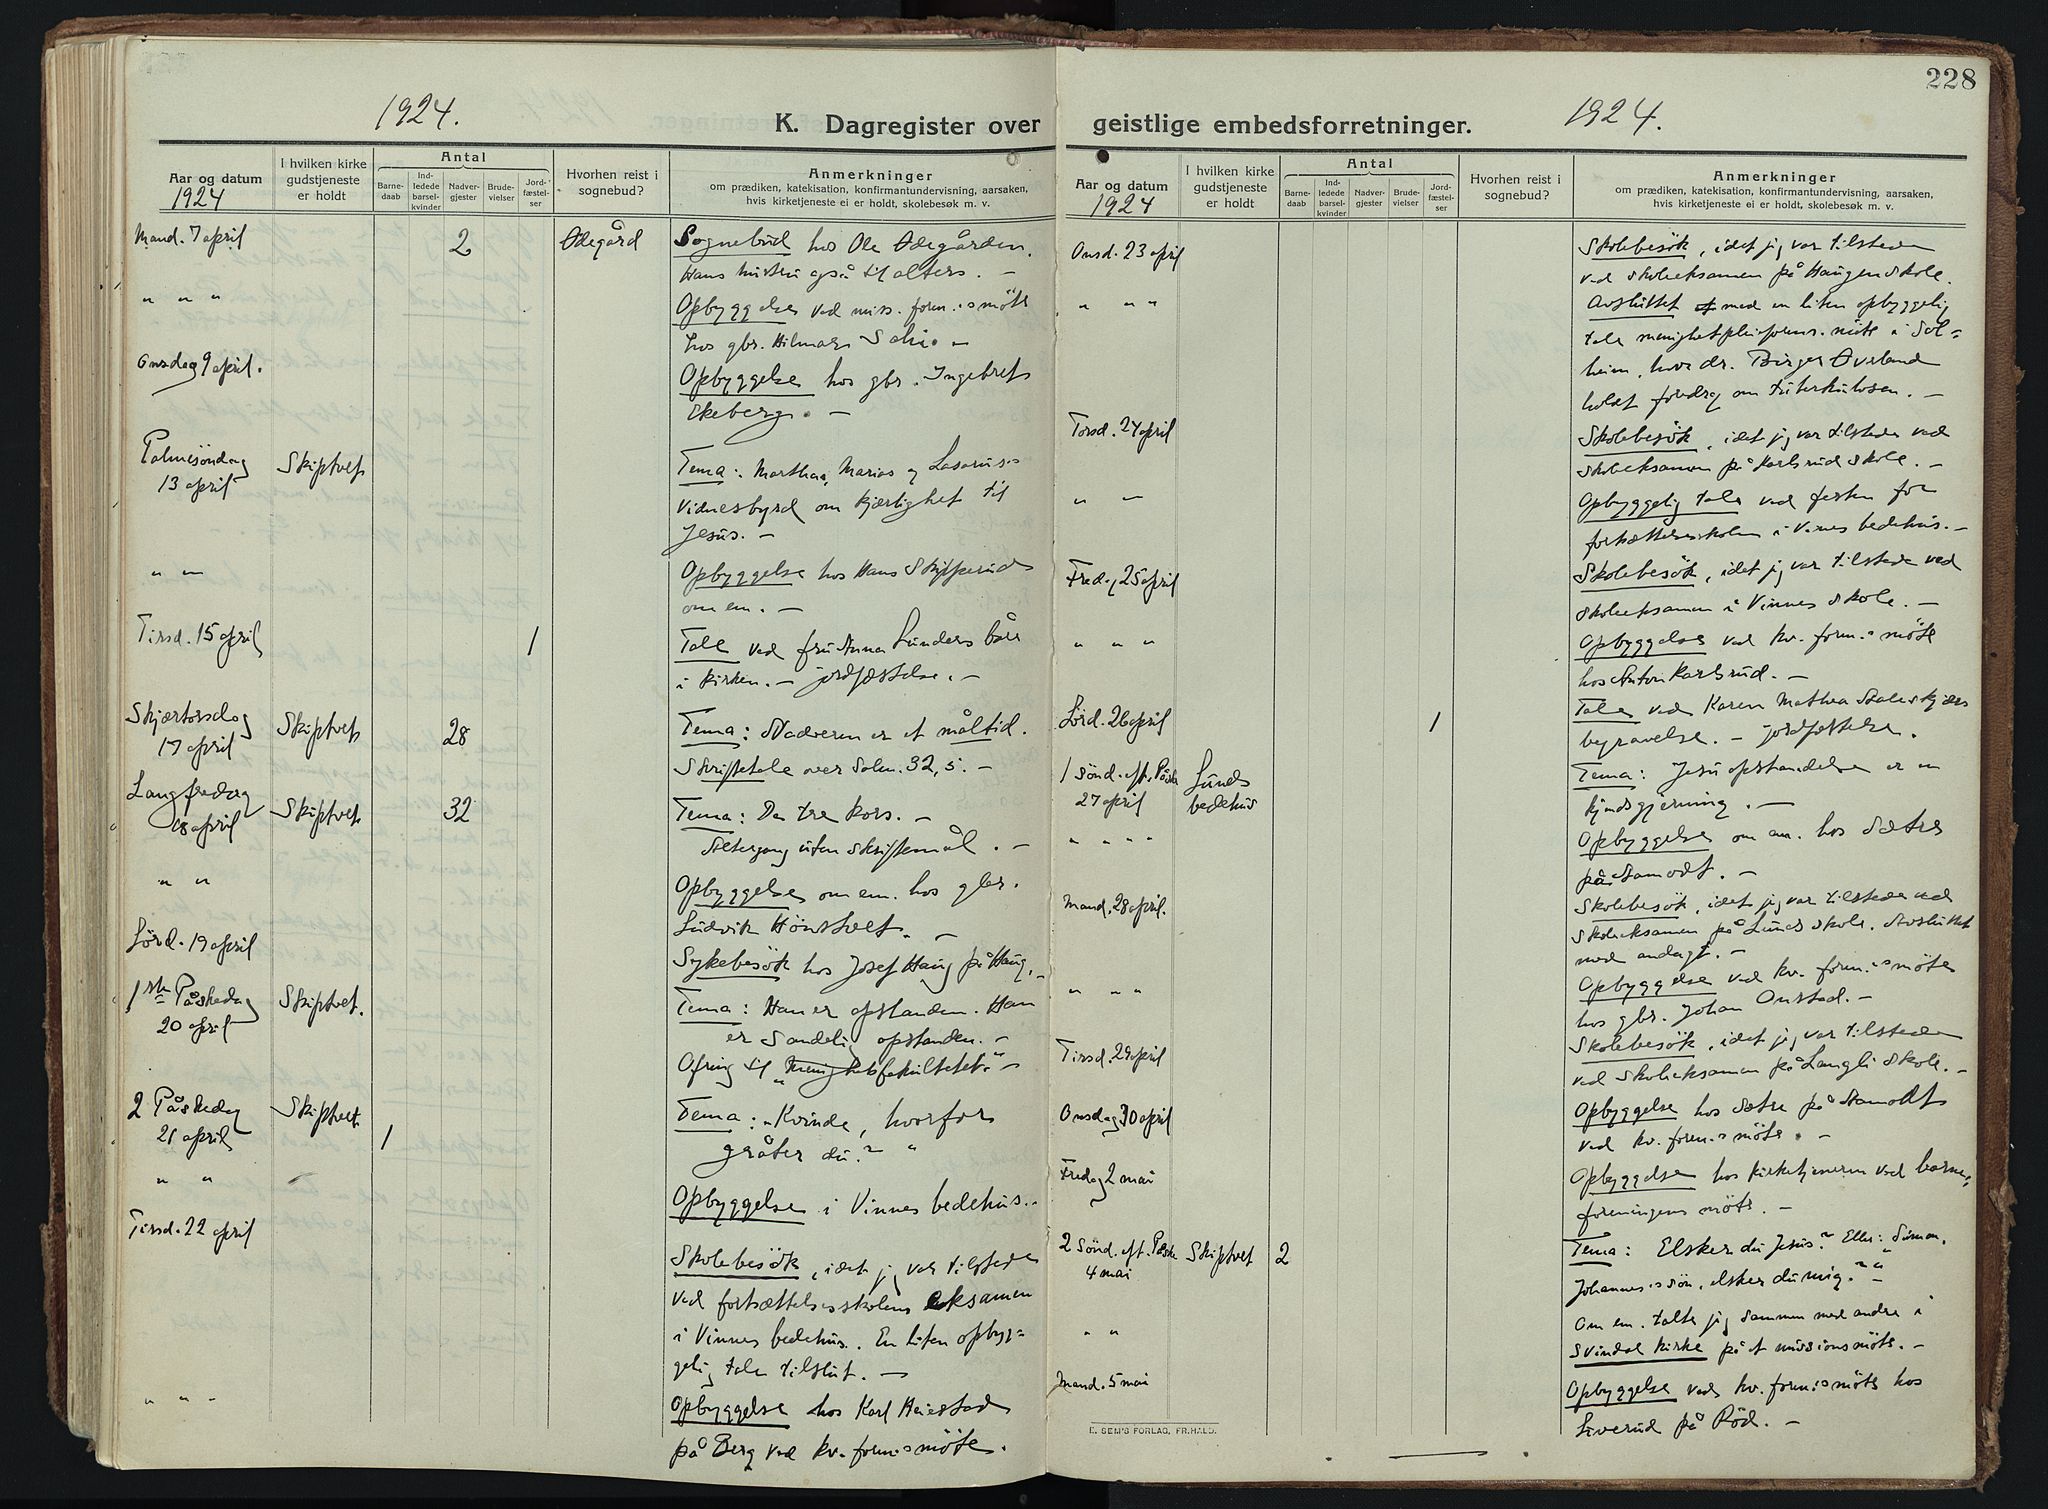 228
1924.
K. Dagregister over
Aar og datum
1924
I hvilken kirke
gudstjeneste
er holdt
Antal
Barne-
daab
Ind-
ledede
barsel-
kvinder
Nadver-
gjester
Brude-
vielser
Jord-
fæstel-
ser
Hvorhen reist i
sognebud?
Anmerkninger
om prædiken, katekisation, konfirmantundervisning, aarsaken,
hvis kirketjeneste ei er holdt, skolebesøk m. v.
Mand. 7 april 2 Ødegård Sognebud hos Ole Ødegården.
Hans hustru også til alters. –
" " " Opbyggelse ved miss. foren.s møte
hos gbr. Hilmar
Onsdag 9 april. Opbyggelse hos gbr. Ingebret
Ekeberg. –
Palmesöndag Skiptvet Tema: Marthas, Marias og Lasarus's
13 april vidnesbyrd om kjærlighet til
Jesus. –
" " Opbyggelse hos Hans Skipperud
om em. –
Tirsd. 15 april 1 Tale ved fru Anna Lunders båre
i kirken. – jordfæstelse. –
Skjærtorsdag Skiptvet 28 Tema: Nadveren er et måltid.
17 april Skriftetale over Salm. 32, 5. –
Langfredag Skiptvet 32 Tema: De tre kors. –
18 april Altergang uten skriftemål. –
" " Opbyggelse om em. hos gbr.
Ludvik Hönsvet. –
Lörd. 19 april Sykebesök hos Josef Haug på Haug. –
1ste Påskedag Skiptvet. Tema: Han er opstanden. Han
20 april er sandelig opstanden. –
Ofring til "Menighetsfakultetet." –
2 Påskedag Skiptvet 1 Tema: "Kvinde, hvorfor
21 april gråter du?"
" " Opbyggelse i Vinnes bedehus. –
Tirsd. 22 april Skolebesök, idet jeg var tilstede
ved fortsættelsesskolens eksamen
i Vinnes bedehus. En liten opbyg=
gelig tale tilslut. –
" " " Opbyggelse hos Karl Heiestad
på Berg ved kv. foren.s møte.
geistlige embedsforretninger.
1924.
Aar og datum
1924
I hvilken kirke
gudstjeneste
er holdt
Antal
Barne-
daab
Ind-
ledede
barsel-
kvinder
Nadver-
gjester
Brude-
vielser
Jord-
fæstel-
ser
Hvorhen reist i
sognebud?
Anmerkninger
om prædiken, katekisation, konfirmantundervisning, aarsaken,
hvis kirketjeneste ei er holdt, skolebesøk m. v.
Onsd. 23 april Skolebesök, idet jeg var tilstede
ved skoleeksamen på Haugen skole.
" " " Avsluttet med en liten opbyggelig
tale menighetspleieforen. møte i Sol=
heim, hvor dr. Birger Øverland
holdt foredrag om tuberkulosen. –
Torsd. 24 april Skolebesök, idet jeg var tilstede ved
skoleeksamen på Karlsrud skole. –
" " Opbyggelig tale ved festen for
fortsættelsesskolen i Vinnes bedehus. –
Fredag 25 april Skolebesök, idet jeg var tilstede ved
skoleeksamen i Vinnes skole. –
" " " Opbyggelse ved kv. foren.s møte
hos Anton Karlsrud. –
Lörd. 26 april 1 Tale ved Karen Mathea
begravelse. – jordfæstelse.
1 sönd. eft. Påske Lunds Tema: Jesu opstandelse er en
27 april bedehus kjendsgjerning. –
" " " Opbyggelse om em. hos Sætre
på Stamodt. –
Mand. 28 april. Skolebesök, idet jeg var tilstede ved
skoleeksamen på Lunds skole. Avsluttet
med andagt. –
" " " Opbyggelse ved kv. foren.s møte
hos gbr. Johan Onstad. –
Tirsd. 29 april Skolebesök, idet jeg var tilstede
ved skoleeksamen på Langli skole. –
Onsdag 30 april Opbyggelse hos Sætre på Stamodt
ved kv. foren.s møte. –
Fredag 2 mai Opbyggelse hos kirketjeneren ved barne-
foreningens møte. –
2 Sönd. eft. Påske Skiptvet 2 Tema: Elsker du Jesus? Eller: "Simon,
4 mai Johannes's sön, elsker du mig?" –
" " Om em. talte jeg sammen med andre i
Svindal kirke på et missionsmøte. –
Mand. 5 mai Opbyggelse ved kv. foren.s møte hos
Liverud på Röd. –
E. SEM'S FORLAG, FR.HALD.